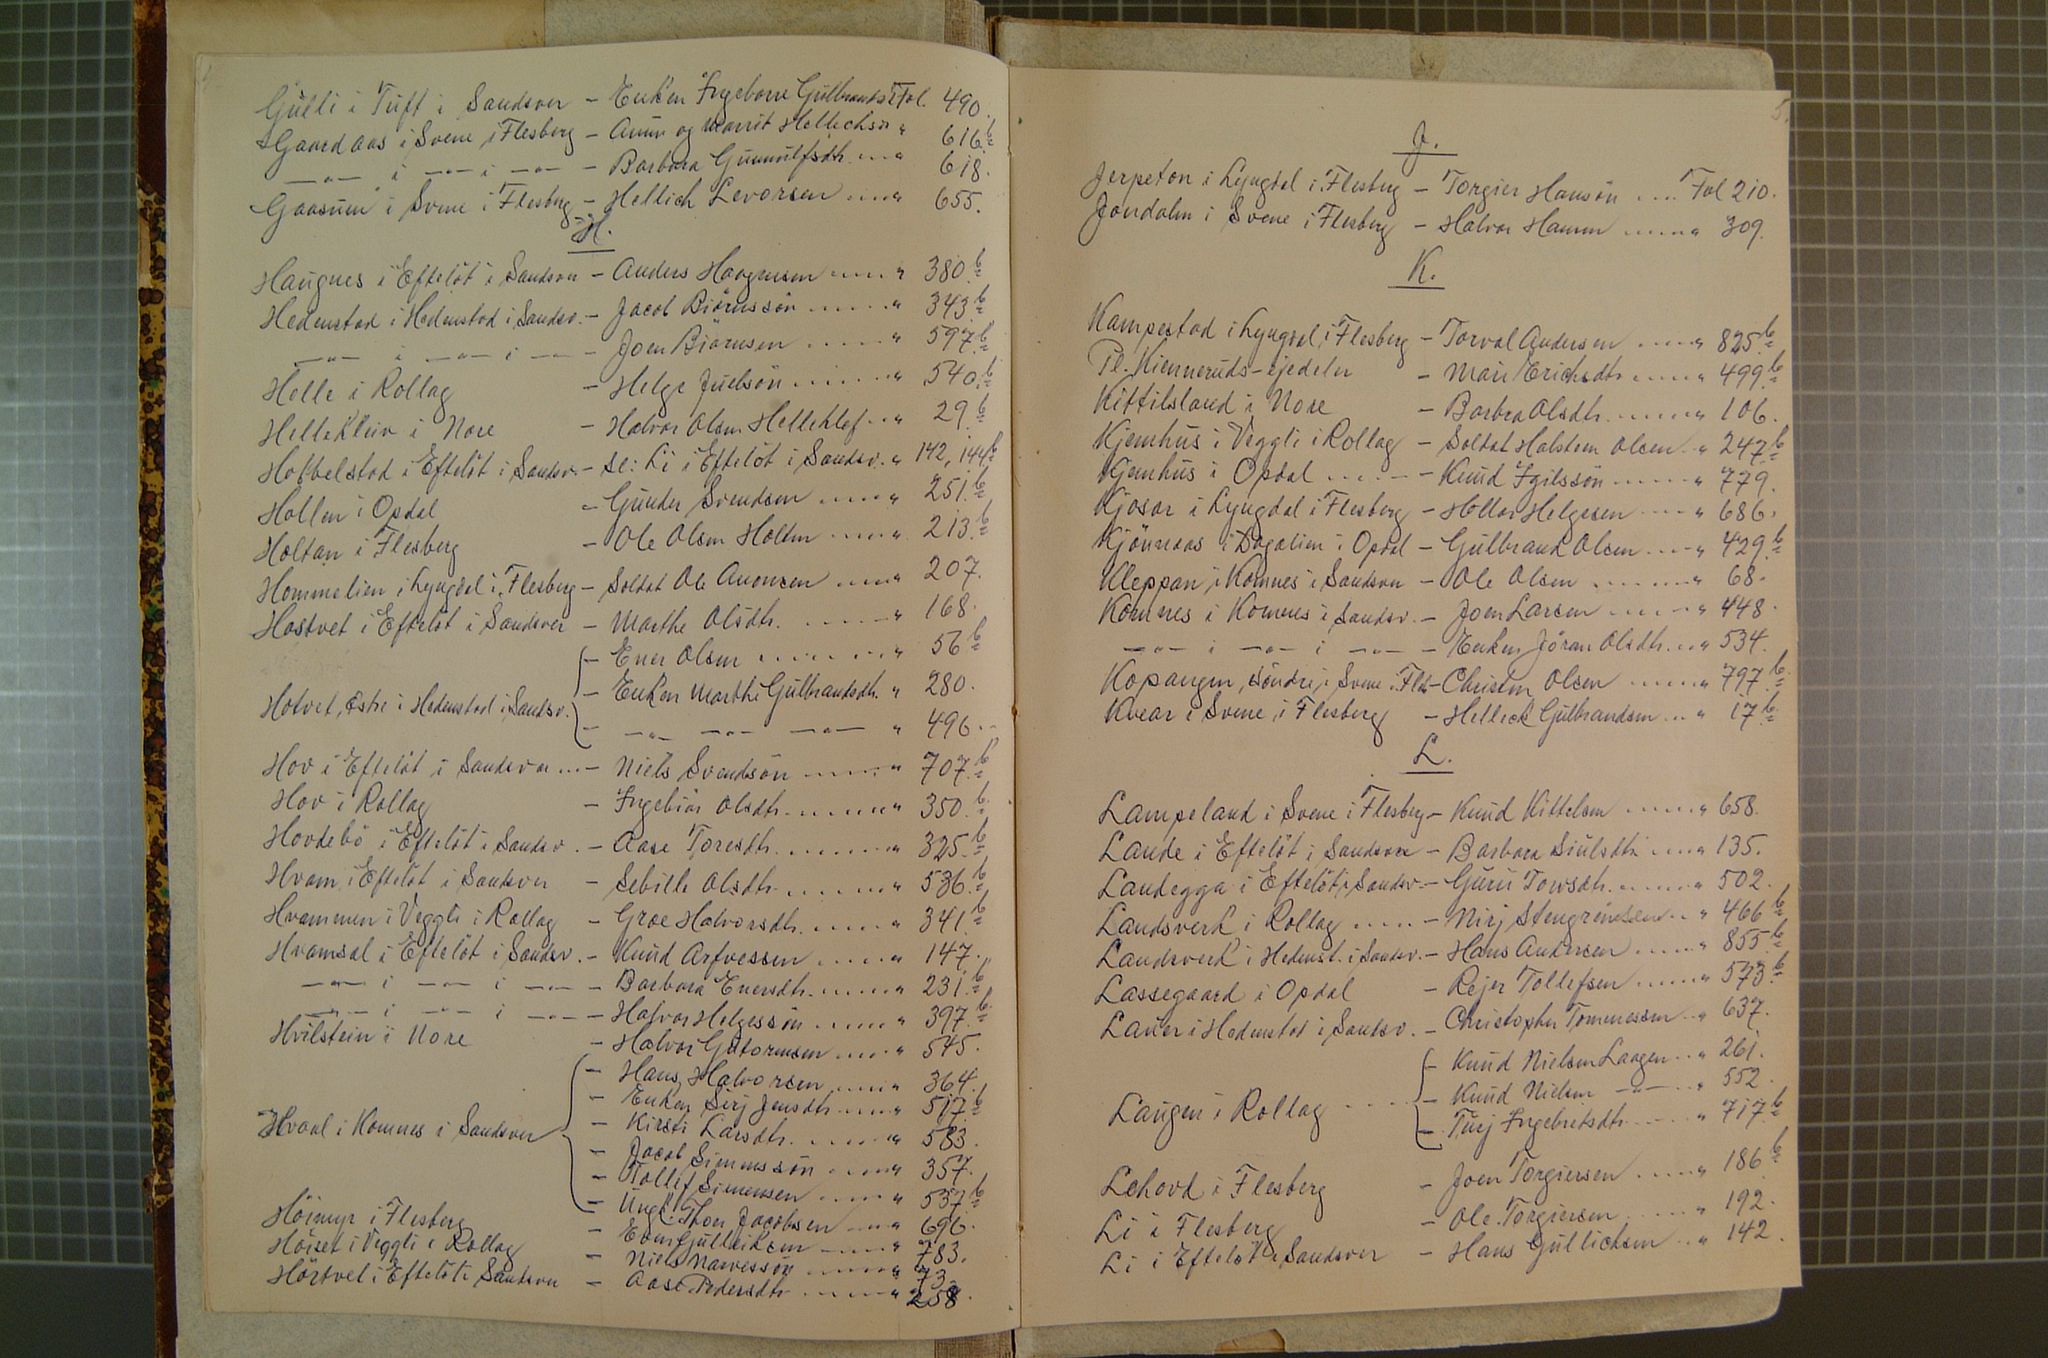 Gulli i Tuft i Sandsver - Enken Ingeborre Gulbrandsd. Fol. 490.
Gaardaas i Svene i Flesberg - Anne og Marit Hellechsd. " 616 b
—"— i —"— i —"— - Barbara Gunnulfsdtr. ..." 618.
Gaasuen i Svene i Flesberg - Hellich Levorsen ....." 655.
H.
Haugnes i Efteløt i Sandsver - Anders Haagensen ....." 380 b
Hedenstad i Hedenstad i Sandsv. - Jacob Biørnssøn ....." 343 b
—"— i —"— i —"— - Joen Biørnsen ....." 597 b
Helle i Rollag - Helge Juelsøn ....." 540 b
Hellekleiv i Nore - Halvor Olsen Helleklef ..." 29 b
Hobbelstad i Efteløt i Sandsv. - se: Li i Efteløt i Sandsv. " 142, 144 b
Hollen i Opdal - Gunder Svendsen ....." 251 b
Holtan i Flesberg - Ole Olsen Holten ....." 213 b
Hommelien i Lyngdal i Flesberg - Soldat Ole Anonsen ....." 207.
Hostvet i Efteløt i Sandsver - Marthe Olsdtr. ....." 168.
- Ener Olsen ....." 56 b
Hotvet, østre i Hedenstad i Sandsv. - Enken Marthe Gulbrandsdtr. " 280.
- —"— —"— —"— " 496.
Hov i Efteløt i Sandsver ... - Niels Svendsøn ....." 707 b
Hov i Rollag - Ingebiør Olsdtr. ....." 350 b
Hovdebø i Efteløt i Sandsv. - Aase Toresdtr. ....." 325 b
Hvam i Efteløt i Sandsver - Sebille Olsdtr. ....." 536 b
Hvammen i Veggli i Rollag - Groe Halvorsdtr. ....." 341 b
Hvamsal i Efteløt i Sandsv. - Knud Arfvessen ....." 147.
—"— i —"— i —"— - Barbara Enersdtr. ....." 231 b
—"— i —"— i —"— - Halvor Helgessøn ....." 397 b
Hvilstein i Nore - Halvor Gutormsen ....." 545.
- Hans Halvorsen ....." 364.
- Enken Sirj Jensdtr. ....." 517 b
Hvaal i Komnes i Sandsver - Kirsti Larsdtr. ....." 583.
- Jacob Simenssøn ....." 357.
- Tollef Simensen ....." 537 b
- Ungk. Thoer Jacobsen ..." 696.
Høimyr i Flesberg - Even Gulleiksen ....." 783.
Høiset i Veggli i Rollag - Niels Narvessøn ....." 73.
Hørtvet i Efteløt i Sandsver - Aase Pedersdtr. ....." 258.
5.
J.
Jerpeton i Lyngdal i Flesberg - Torgier Hansøn .... Fol 210.
Jondalen i Svene i Flesberg - Halvor Hansen ....." 309.
K.
Kampestad i Lyngdal i Flesberg - Torval Andersen ....." 825 b
Pl. Kienneruds-ejedeler - Mari Erichsdtr. ....." 499 b
Kittilsland i Nore - Barbra Olsdtr. ....." 106.
Kjemhus i Veggli i Rollag - Soldat Halsten Olsen .." 247 b
Kjemhus i Opdal ..... - Knud Igilssøn ....." 779.
Kjosar i Lyngdal i Flesberg - Hellov Helgesen ....." 686.
Kjønnaas i Dagalien i Opdal - Gulbrand Olsen ....." 429 b
Kleppan i Komnes i Sandsver - Ole Olsen ....." 68.
Komnes i Komnes i Sandsv. - Joen Larsen ....." 448.
—"— i —"— i —"— - Enken Jøran Olsdtr. ..." 534.
Kopangen, søndre i Svene i Flbg - Christen Olsen ....." 797 b
Kvear i Svene i Flesberg - Helleck Gulbrandsen ..." 17 b
L.
Lampeland i Svene i Flesberg - Knud Kittelsen ....." 658.
Lande i Efteløt i Sandsver - Barbara Siulsdtr. ....." 135.
Landegga i Efteløt i Sandsv. - Guru Towsdtr. ....." 502.
Landsverk i Rollag ..... - Nirj Stengrimsen ..." 466 b
Landsverk i Hedenst. i Sandsv. - Hans Andersen ....." 855 b
Lassegaard i Opdal - Rejer Tollefsen ....." 573 b
Lauer i Hedenstad i Sandsv. - Christopher Tommessen ..." 637.
- Knud Nielsen Laagen ..." 261.
Laugen i Rollag .... - Knud Nielsen —"— ..." 552.
- Turj Ingebretsdtr. ....." 717 b
Lehovd i Flesberg - Joen Torgiersen ....." 186 b
Li i Flesberg - Ole Torgiersen ....." 192.
Li i Efteløt i Sandsver - Hans Gullichsen ..." 142.